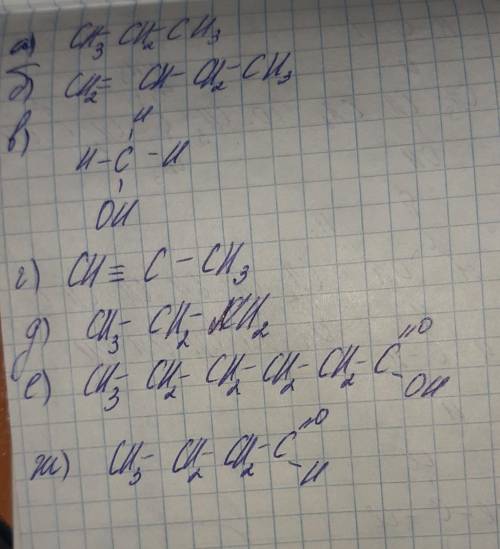 а) CH₃-CH₂-CH₃
б) CH₂= CH-CH₂-CH₃
в) H
H-C-H
OH
г) CH≡ C-CH₃
д) CH₃-CH₂-NH₂
е) CH₃-CH₂-CH₂-CH₂-CH₂-C=O
-OH
ж) CH₃-CH₂-CH₂-C=O
-H